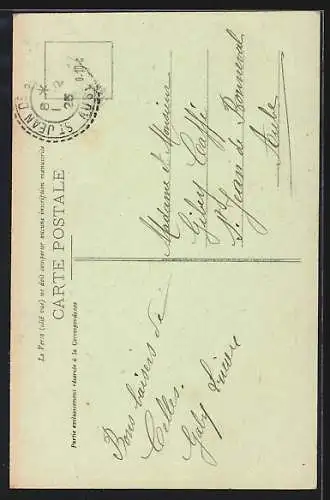 Le Recto (côté vue) ne doit comporter aucune inscription manuscrite
CARTE POSTALE
Partie exclusivement réservée à la Correspondance
Bons baisers de
Celles.
Gaby
Madame et Monsieur
Giley
St Jean de Bonneval
Aube
ST JEAN DE B
8 *
1
25